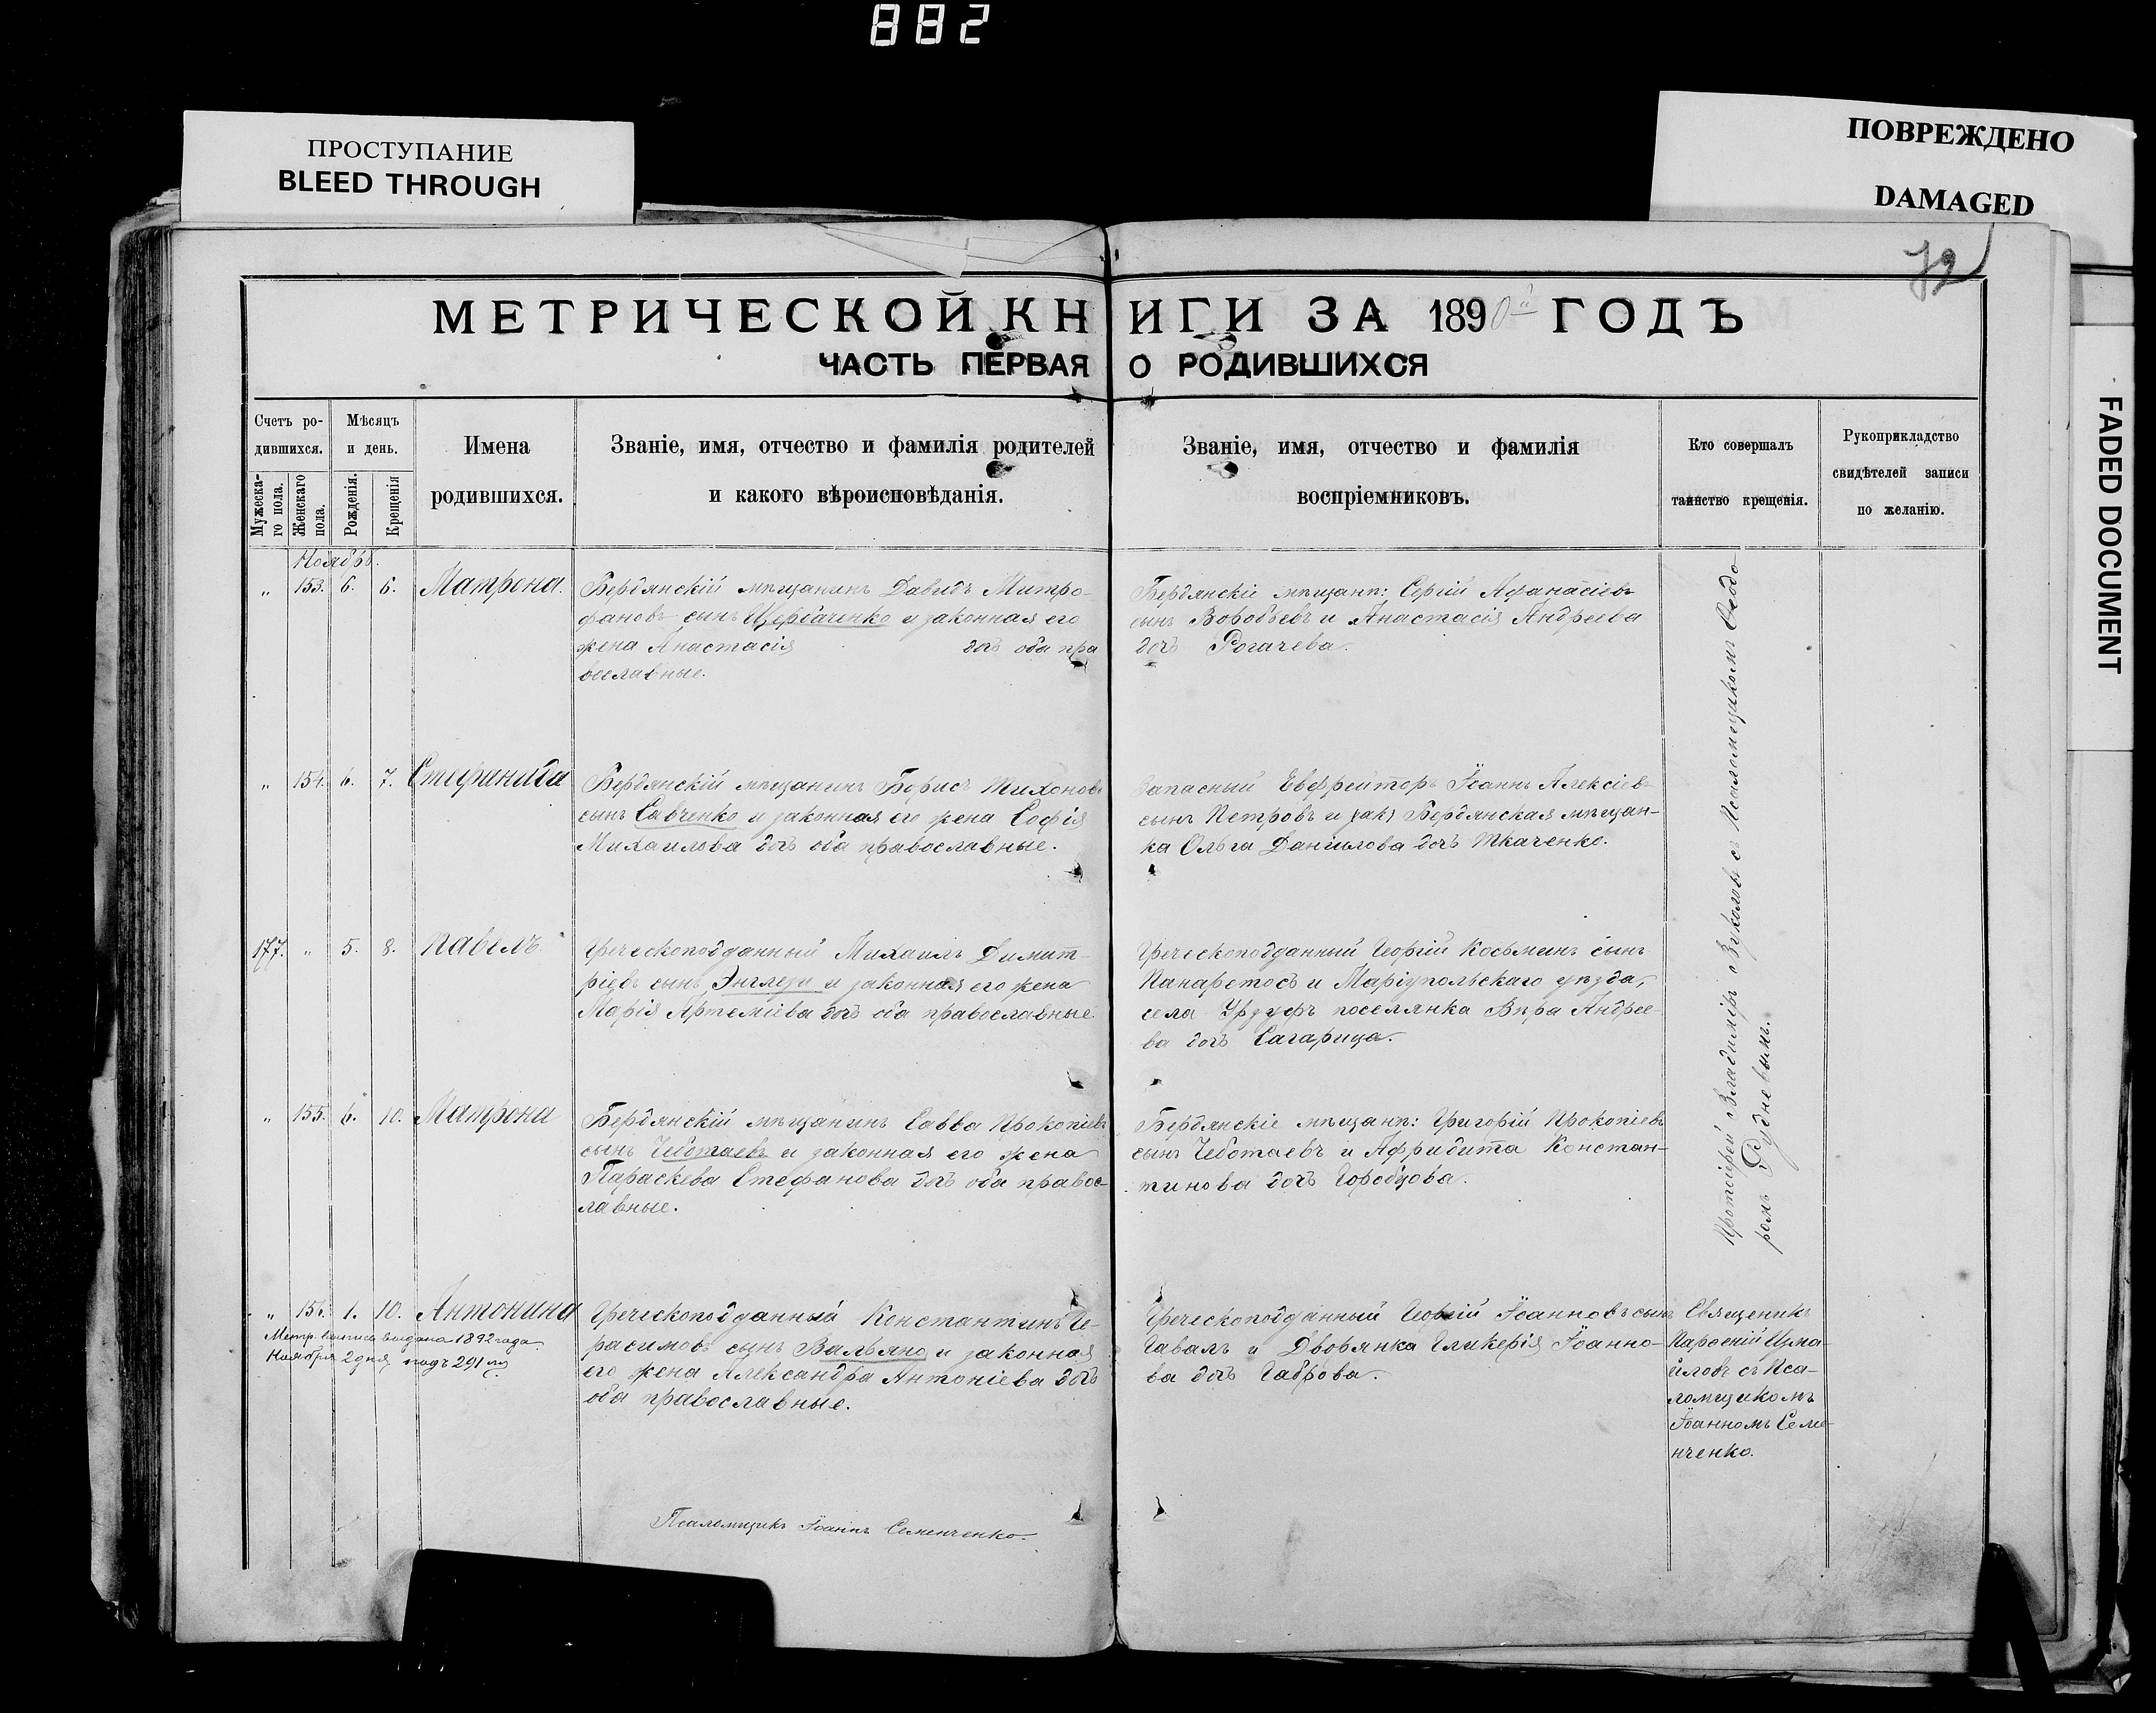 882
ПРОСТУПАНИЕ
BLEED THROUGH
ПОВРЕЖДЕНО
DAMAGED
FADED DOCUMENT
МЕТРИЧЕСКОЙ КНИГИ ЗА 1890й ГОДЪ
ЧАСТЬ ПЕРВАЯ О РОДИВШИХСЯ
Счетъ ро-
дившихся.
Мужеска-
го пола.
Женскаго
пола.
Мѣсяцъ
и день.
Рожденія.
Крещенія
Имена
родившихся.
Званіе, имя, отчество и фамилія родителей
и какого вѣроисповѣданія.
Званіе, имя, отчество и фамилія
воспріемниковъ.
Кто совершалъ
таинство крещенія.
Рукоприкладство
свидѣтелей записи
по желанію.
Ноябрь.
„ 153. 6. 6. Матрона.
Бердянскій мѣщанинъ Давидъ Митро-
фановъ сынъ Щербаченко и законная его
жена Анастасія дочь оба пра
вославные.
Бердянскіе мѣщане: Сергій Афанасіевъ
сынъ Воробьевъ и Анастасія Андреева
дочь Рогачева.
„ 154. 6. 7. Стефанида
Бердянскій мѣщанинъ Борисъ Тихоновъ
сынъ Савченко и законная его жена Софія
Михаилова дочь оба православные.
Запасный Евфрейторъ Іоаннъ Алексіевъ
сынъ Петровъ и Бердянская мѣщан-
ка Ольга Даніилова дочь Ткаченко.
177. „ 5. 8. Павелъ.
Греческоподданный Михаилъ Димит-
ріевъ сынъ Энглези и законная его жена
Марія Артеміева дочь оба православные.
Греческоподданный Георгій Косьминъ сынъ
Панаретосъ и Маріупольскаго уѣзда,
села Урзуфъ поселянка Вѣра Андрее-
ва дочь Сагарица.
„ 155. 6. 10. Матрона
Бердянскій мѣщанинъ Савва Прокопіевъ
сынъ Чеботаевъ и законная его жена
Параскева Стефанова дочь оба правос-
лавные.
Бердянскіе мѣщане: Григорій Прокопіевъ
сынъ Чеботаевъ и Афридита Констан-
тинова дочь Горобцова.
Протоіерей Владиміръ съ Псаломщикомъ Ѳедо-
ромъ Рудневымъ.
„ 156. 1. 10. Антонина
Метр. выпись выдана 1892 года
Ноября 2 дня подъ 291
Греческоподданный Константинъ Ге-
расимовъ сынъ Вальяно и законная
его жена Александра Антоніева дочь
оба православные.
Греческоподданный Георгій Іоанновъ сынъ
Гавалъ и Дворянка Гликерія Іоанно-
ва дочь Гаврова.
Священникъ
Парѳеній Изма-
иловъ съ Пса-
ломщикомъ
Іоанномъ Семе-
нченко.
Псаломщикъ Іоаннъ Семенченко.